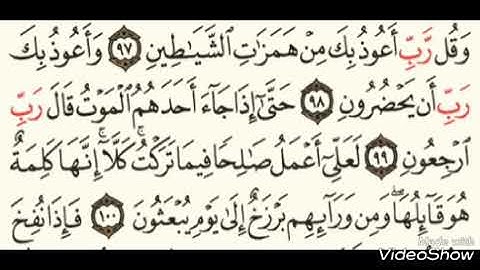 وَقُل رَّبِّ أَعُوذُ بِكَ مِنْ هَمَزَٰتِ ٱلشَّيَٰطِينِ ٩٧ وَأَعُوذُ بِكَ
رَبِّ أَن يَحْضُرُونِ ٩٨ حَتَّىٰٓ إِذَا جَآءَ أَحَدَهُمُ ٱلْمَوْتُ قَالَ رَبِّ
ٱرْجِعُونِ ٩٩ لَعَلِّىٓ أَعْمَلُ صَٰلِحًا فِيمَا تَرَكْتُ ۚ كَلَّآ ۚ إِنَّهَا كَلِمَةٌ
هُوَ قَآئِلُهَا ۖ وَمِن وَرَآئِهِم بَرْزَخٌ إِلَىٰ يَوْمِ يُبْعَثُونَ ١٠٠ فَإِذَا نُفِخَ
Made with
VideoShow